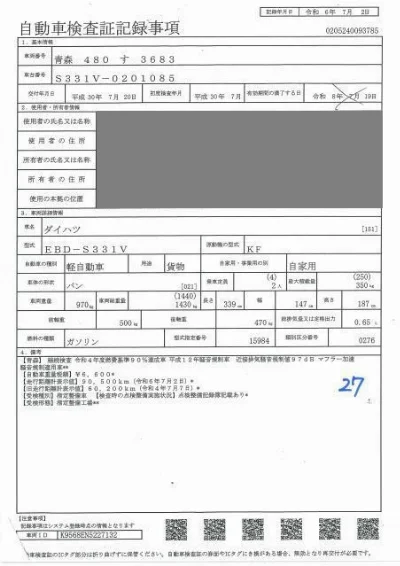 記録年月日 令和 6年 7月 2日
自動車検査証記録事項
0205240093785
1．基本情報
車両番号 青森 480 す 3683
車台番号 S331V-0201085
交付年月日 平成30年 7月20日 初度検査年月 平成30年 7月 有効期間の満了する日 令和 8年 7月19日
2．使用者・所有者情報
使用者の氏名又は名称
使用者の住所
所有者の氏名又は名称
所有者の住所
使用の本拠の位置
3．車両詳細情報
車名 ダイハツ [151]
型式 EBD-S331V 原動機の型式 KF
自動車の種別 軽自動車 用途 貨物 自家用・事業用の別 自家用
車体の形状 バン [021] 乗車定員 (4) 2人 最大積載量 (250) 350kg
車両重量 970kg 車両総重量 (1440) 1430kg 長さ 339cm 幅 147cm 高さ 187cm
前軸重 500kg 後軸重 470kg 総排気量又は定格出力 0.65L
燃料の種類 ガソリン 型式指定番号 15984 類別区分番号 0276
4．備考
【青森】 継続検査 令和4年度燃費基準90%達成車 平成12年騒音規制車 近接排気騒音規制値97dB マフラー加速
騒音規制適用車**
【自動車重量税額】¥6,600*
【走行距離計表示値】90,500km（令和6年7月2日）*
【旧走行距離計表示値】60,200km（令和4年7月7日）*
【受検種別】指定整備車 【検査時の点検整備実施状況】点検整備記録簿記載あり*
【受検形態】指定整備工場**
27
【注意事項】
記録事項はシステム登録時点の情報となります
車両ID K9568EN5227132
車検査証のICタグ部分は折り曲げずに保管ください。自動車検査証の券面やICタグにき損がある場合、無効となり再交付が必要です。